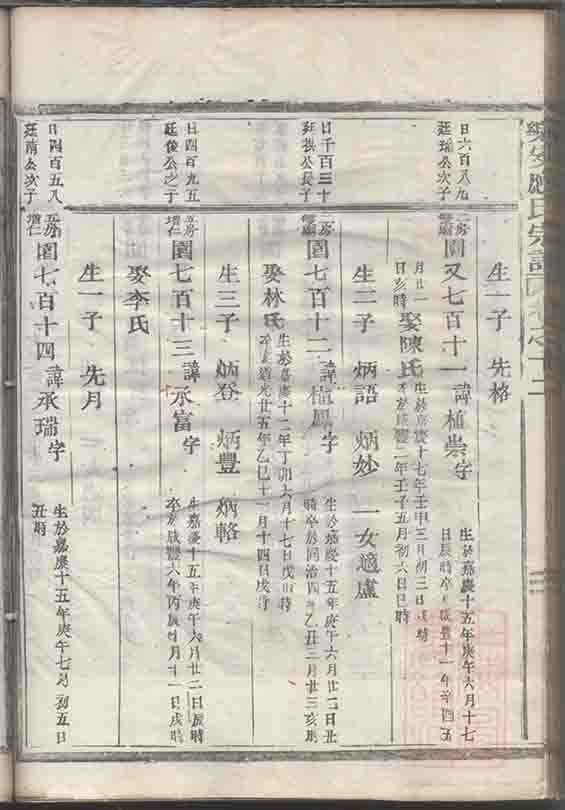 樂安應氏宗譜 卷之十二
生一子 先格
日六百八九 廷瑞公次子
二房
園又七百十一 諱植崇字
生於嘉慶十五年庚午六月十七
日辰時卒於咸豐十一年辛酉五
月廿一
日亥時
娶陳氏
生於嘉慶十七年壬申三月初三日戌時
卒於咸豐二年壬子五月初六日巳時
生二子 炳語 炳妙 一女適盧
日千百三十 廷拱公長子
二房
園七百十二 諱植鳳字
生於嘉慶十五年庚午六月廿二日丑
時卒於同治四年乙丑三月廿三亥時
娶林氏
生於嘉慶十二年丁卯六月十七日戊時
卒於道光廿五年乙巳十一月十四日戌時
生三子 炳登 炳豐 炳輅
日四百九五 廷俊公之子
五房
園七百十三 諱承富字
生嘉慶十五年庚午六月廿二日辰時
卒於咸豐六年丙辰 月十一日戌時
娶李氏
生一子 先月
日四百五八 廷甫公次子
園七百十四 諱承瑞字
生於嘉慶十五年庚午七月初五日
丑時